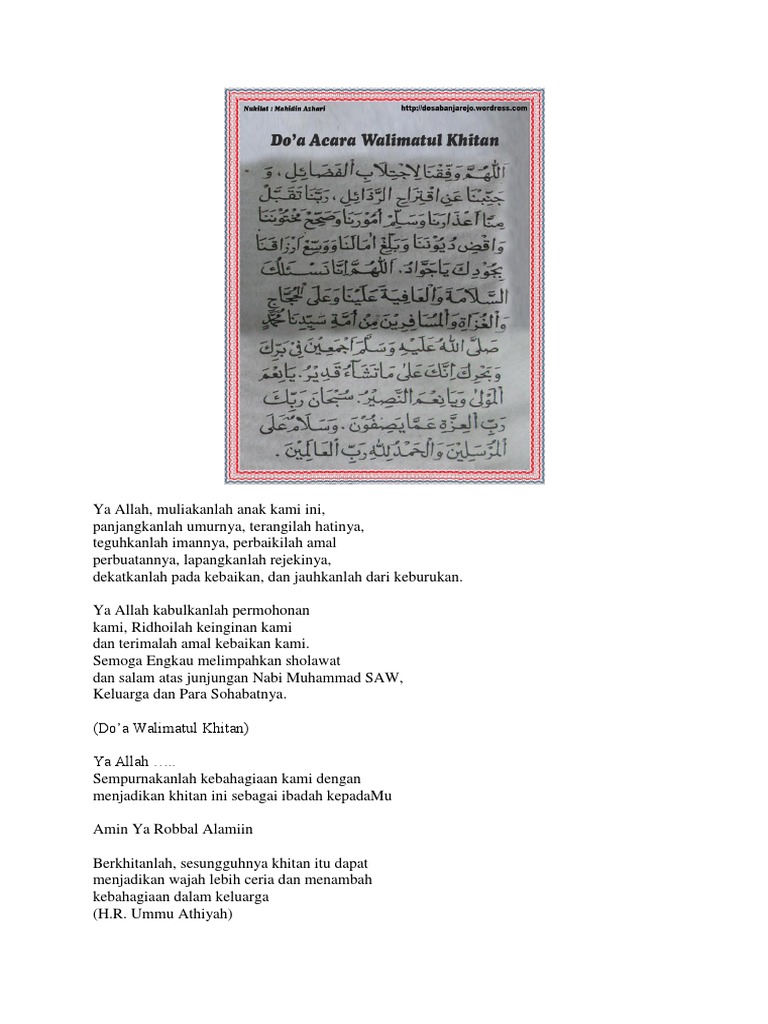 Nukilat : Mahidin Azhari
http://dosabanjarejo.wordress.com
Do'a Acara Walimatul Khitan
اَللّٰهُمَّ وَفِّقْنَا لِاجْتِلَابِ الْفَضَائِلِ ، وَ
جَنِّبْنَا عَنِ اقْتِرَاحِ الرَّذَائِلِ ، رَبَّنَا تَقَبَّلْ
مِنَّا أَعْذَارَنَا وَسَلِّمْ أُمُوْرَنَا وَصَحِّحْ مَخْتُوْنَنَا
وَاقْضِ دُيُوْنَنَا وَبَلِّغْ اٰمَالَنَا وَوَسِّعْ أَرْزَاقَنَا
بِجُوْدِكَ يَا جَوَّادُ. اَللّٰهُمَّ إِنَّا نَسْئَلُكَ
السَّلَامَةَ وَالْعَافِيَةَ عَلَيْنَا وَعَلَى الْحُجَّاجِ
وَالْغُزَاةِ وَالْمُسَافِرِيْنَ مِنْ أُمَّةِ سَيِّدِنَا مُحَمَّدٍ
صَلَّى اللهُ عَلَيْهِ وَسَلَّمَ أَجْمَعِيْنَ فِيْ بَرِّكَ
وَبَحْرِكَ إِنَّكَ عَلَى مَا تَشَآءُ قَدِيْرٌ. يَا نِعْمَ
الْمَوْلَى وَيَا نِعْمَ النَّصِيْرُ. سُبْحَانَ رَبِّكَ
رَبِّ الْعِزَّةِ عَمَّا يَصِفُوْنَ. وَسَلَامٌ عَلَى
الْمُرْسَلِيْنَ وَالْحَمْدُ لِلّٰهِ رَبِّ الْعَالَمِيْنَ.
Ya Allah, muliakanlah anak kami ini,
panjangkanlah umurnya, terangilah hatinya,
teguhkanlah imannya, perbaikilah amal
perbuatannya, lapangkanlah rejekinya,
dekatkanlah pada kebaikan, dan jauhkanlah dari keburukan.
Ya Allah kabulkanlah permohonan
kami, Ridhoilah keinginan kami
dan terimalah amal kebaikan kami.
Semoga Engkau melimpahkan sholawat
dan salam atas junjungan Nabi Muhammad SAW,
Keluarga dan Para Sohabatnya.
(Do’a Walimatul Khitan)
Ya Allah …..
Sempurnakanlah kebahagiaan kami dengan
menjadikan khitan ini sebagai ibadah kepadaMu
Amin Ya Robbal Alamiin
Berkhitanlah, sesungguhnya khitan itu dapat
menjadikan wajah lebih ceria dan menambah
kebahagiaan dalam keluarga
(H.R. Ummu Athiyah)